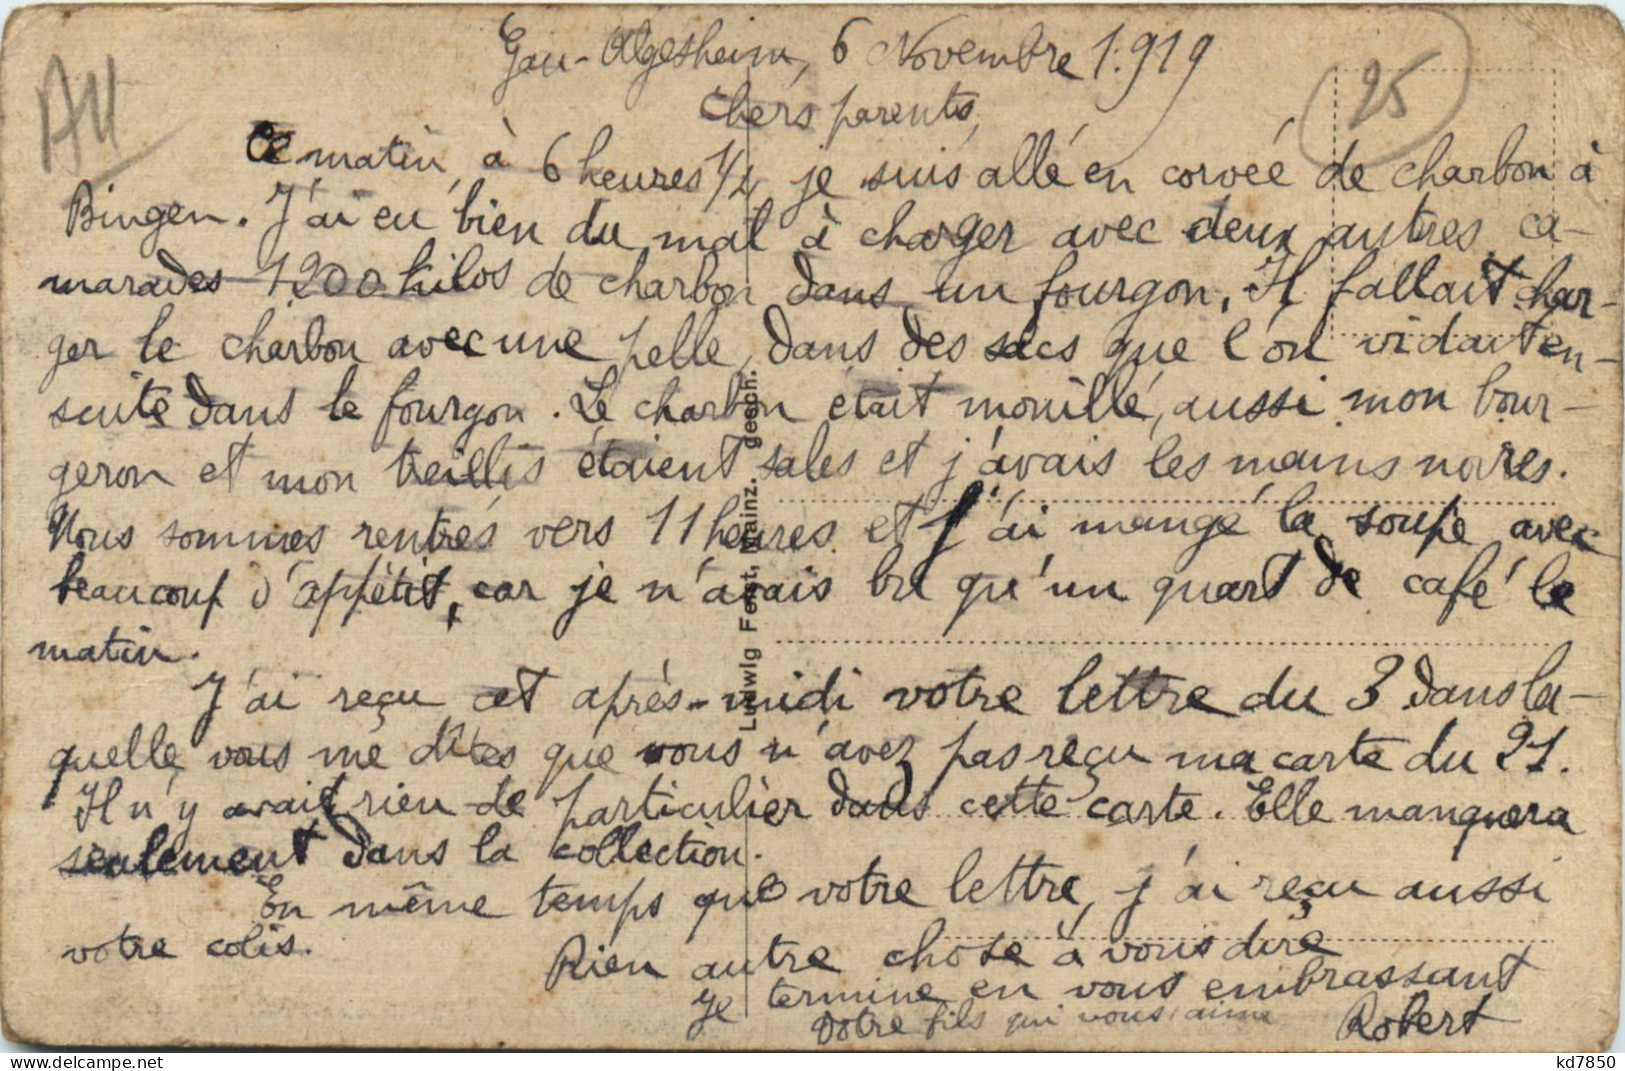 Gau-Algesheim, 6 Novembre 1.919
25
AU
Chers parents,
Ce matin, à 6 heures 1/2 je suis allé en corvée de charbon à
Bingen. J'ai eu bien du mal à charger avec deux autres ca-
marades 1200 kilos de charbon dans un fourgon. Il fallait char-
ger le charbon avec une pelle, dans des sacs que l'on vidait en-
suite dans le fourgon. Le charbon était mouillé, aussi mon bour-
geron et mon treillis étaient sales et j'avais les mains noires.
Nous sommes rentrés vers 11 heures et j'ai mangé la soupe avec
beaucoup d'appétit, car je n'avais bu qu'un quart de café le
matin.
J'ai reçu cet après-midi votre lettre du 3 dans la-
quelle vous me dîtes que vous n'avez pas reçu ma carte du 21.
Il n'y avait rien de particulier dans cette carte. Elle manquera
seulement dans la collection.
En même temps que votre lettre, j'ai reçu aussi
votre colis.
Rien autre chose à vous dire
Je termine en vous embrassant
Votre fils qui vous aime Robert
Ludwig Forst, Mainz. gesch.
kd7850